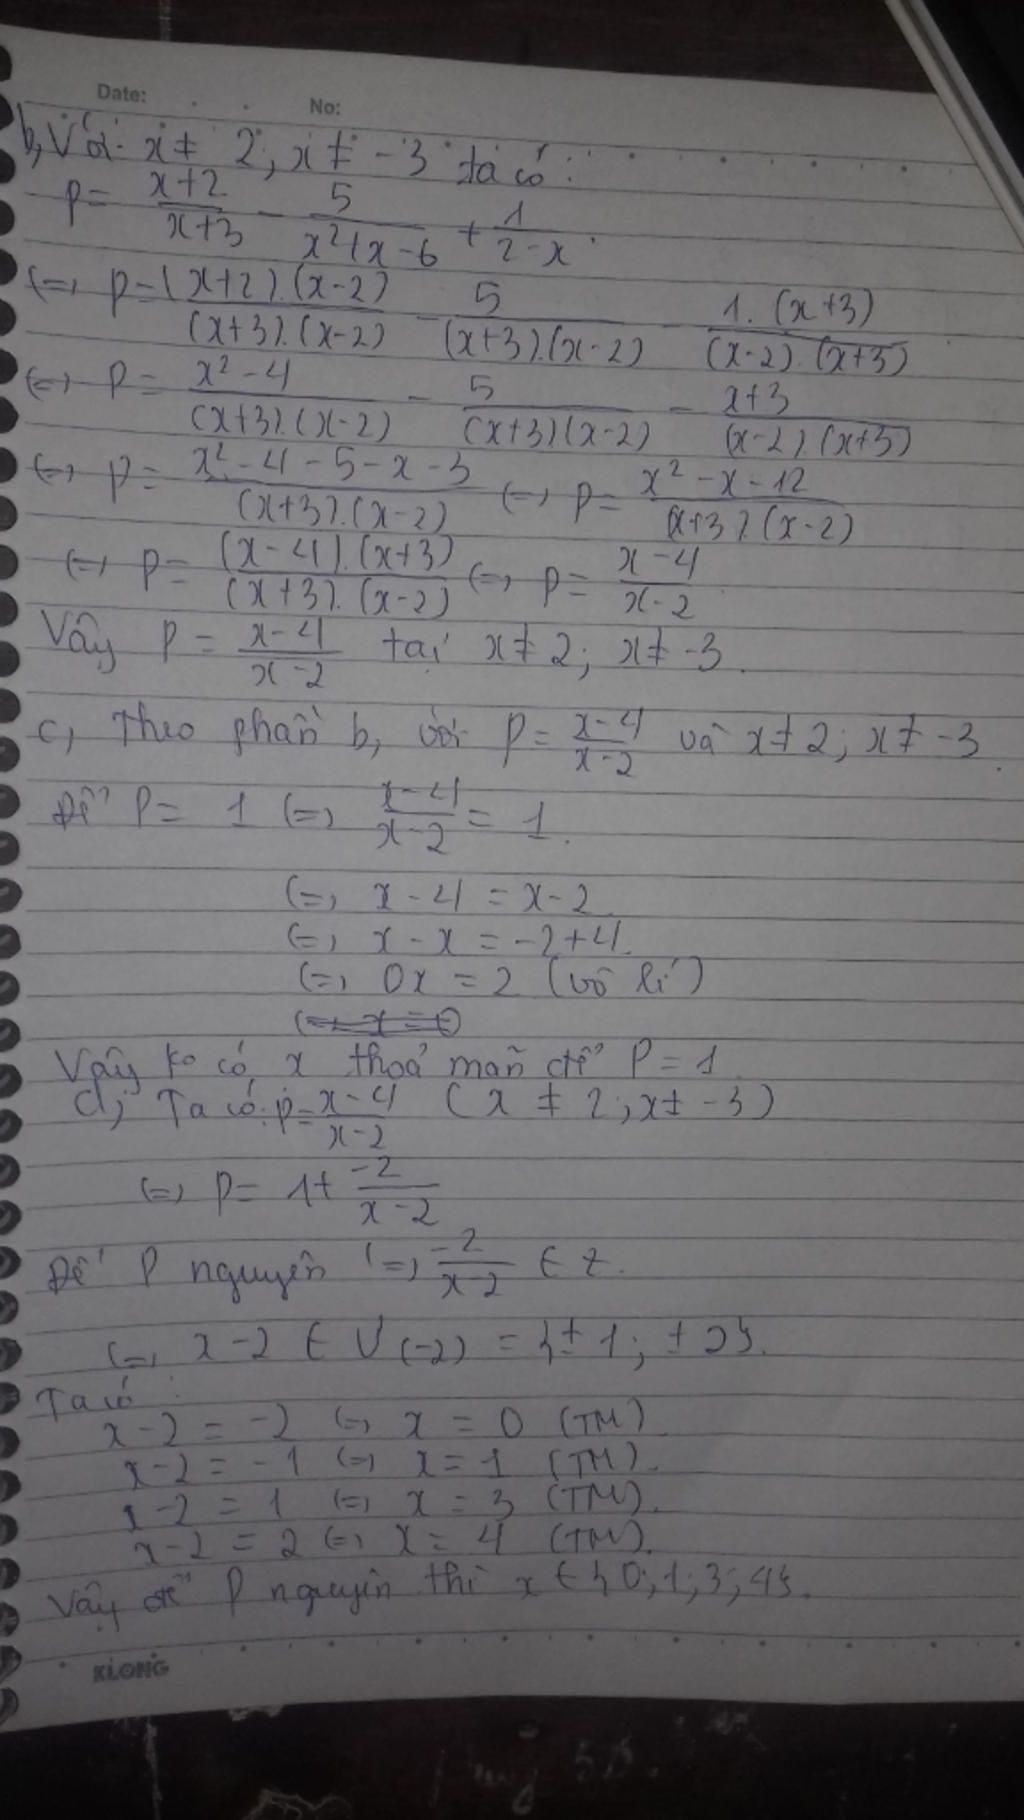 Date: No:
b, Với x ≠ 2, x ≠ -3 ta có:
P = \frac{x+2}{x+3} - \frac{5}{x²+x-6} + \frac{1}{2-x}.
<=> P = \frac{(x+2).(x-2)}{(x+3).(x-2)} - \frac{5}{(x+3).(x-2)} - \frac{1.(x+3)}{(x-2).(x+3)}
<=> P = \frac{x²-4}{(x+3).(x-2)} - \frac{5}{(x+3)(x-2)} - \frac{x+3}{(x-2).(x+3)}
<=> P = \frac{x²-4-5-x-3}{(x+3).(x-2)} <=> P = \frac{x²-x-12}{(x+3).(x-2)}
<=> P = \frac{(x-4).(x+3)}{(x+3).(x-2)} <=> P = \frac{x-4}{x-2}
Vậy P = \frac{x-4}{x-2} tại x ≠ 2; x ≠ -3.
c, Theo phần b, với P = \frac{x-4}{x-2} và x ≠ 2; x ≠ -3.
Để P = 1 <=> \frac{x-4}{x-2} = 1.
<=> x - 4 = x - 2
<=> x - x = -2 + 4.
<=> 0x = 2 (vô lí)
Vậy ko có x thoả mãn để P = 1
d, Ta có: P = \frac{x-4}{x-2} (x ≠ 2; x ≠ -3)
<=> P = 1 + \frac{-2}{x-2}
Để P nguyên <=> \frac{-2}{x-2} ∈ Z.
<=> x - 2 ∈ Ư(-2) = {±1; ±2}.
Ta có:
x - 2 = -2 <=> x = 0 (TM)
x - 2 = -1 <=> x = 1 (TM).
x - 2 = 1 <=> x = 3 (TM).
x - 2 = 2 <=> x = 4 (TM).
Vậy để P nguyên thì x ∈ {0; 1; 3; 4}.
KLONG